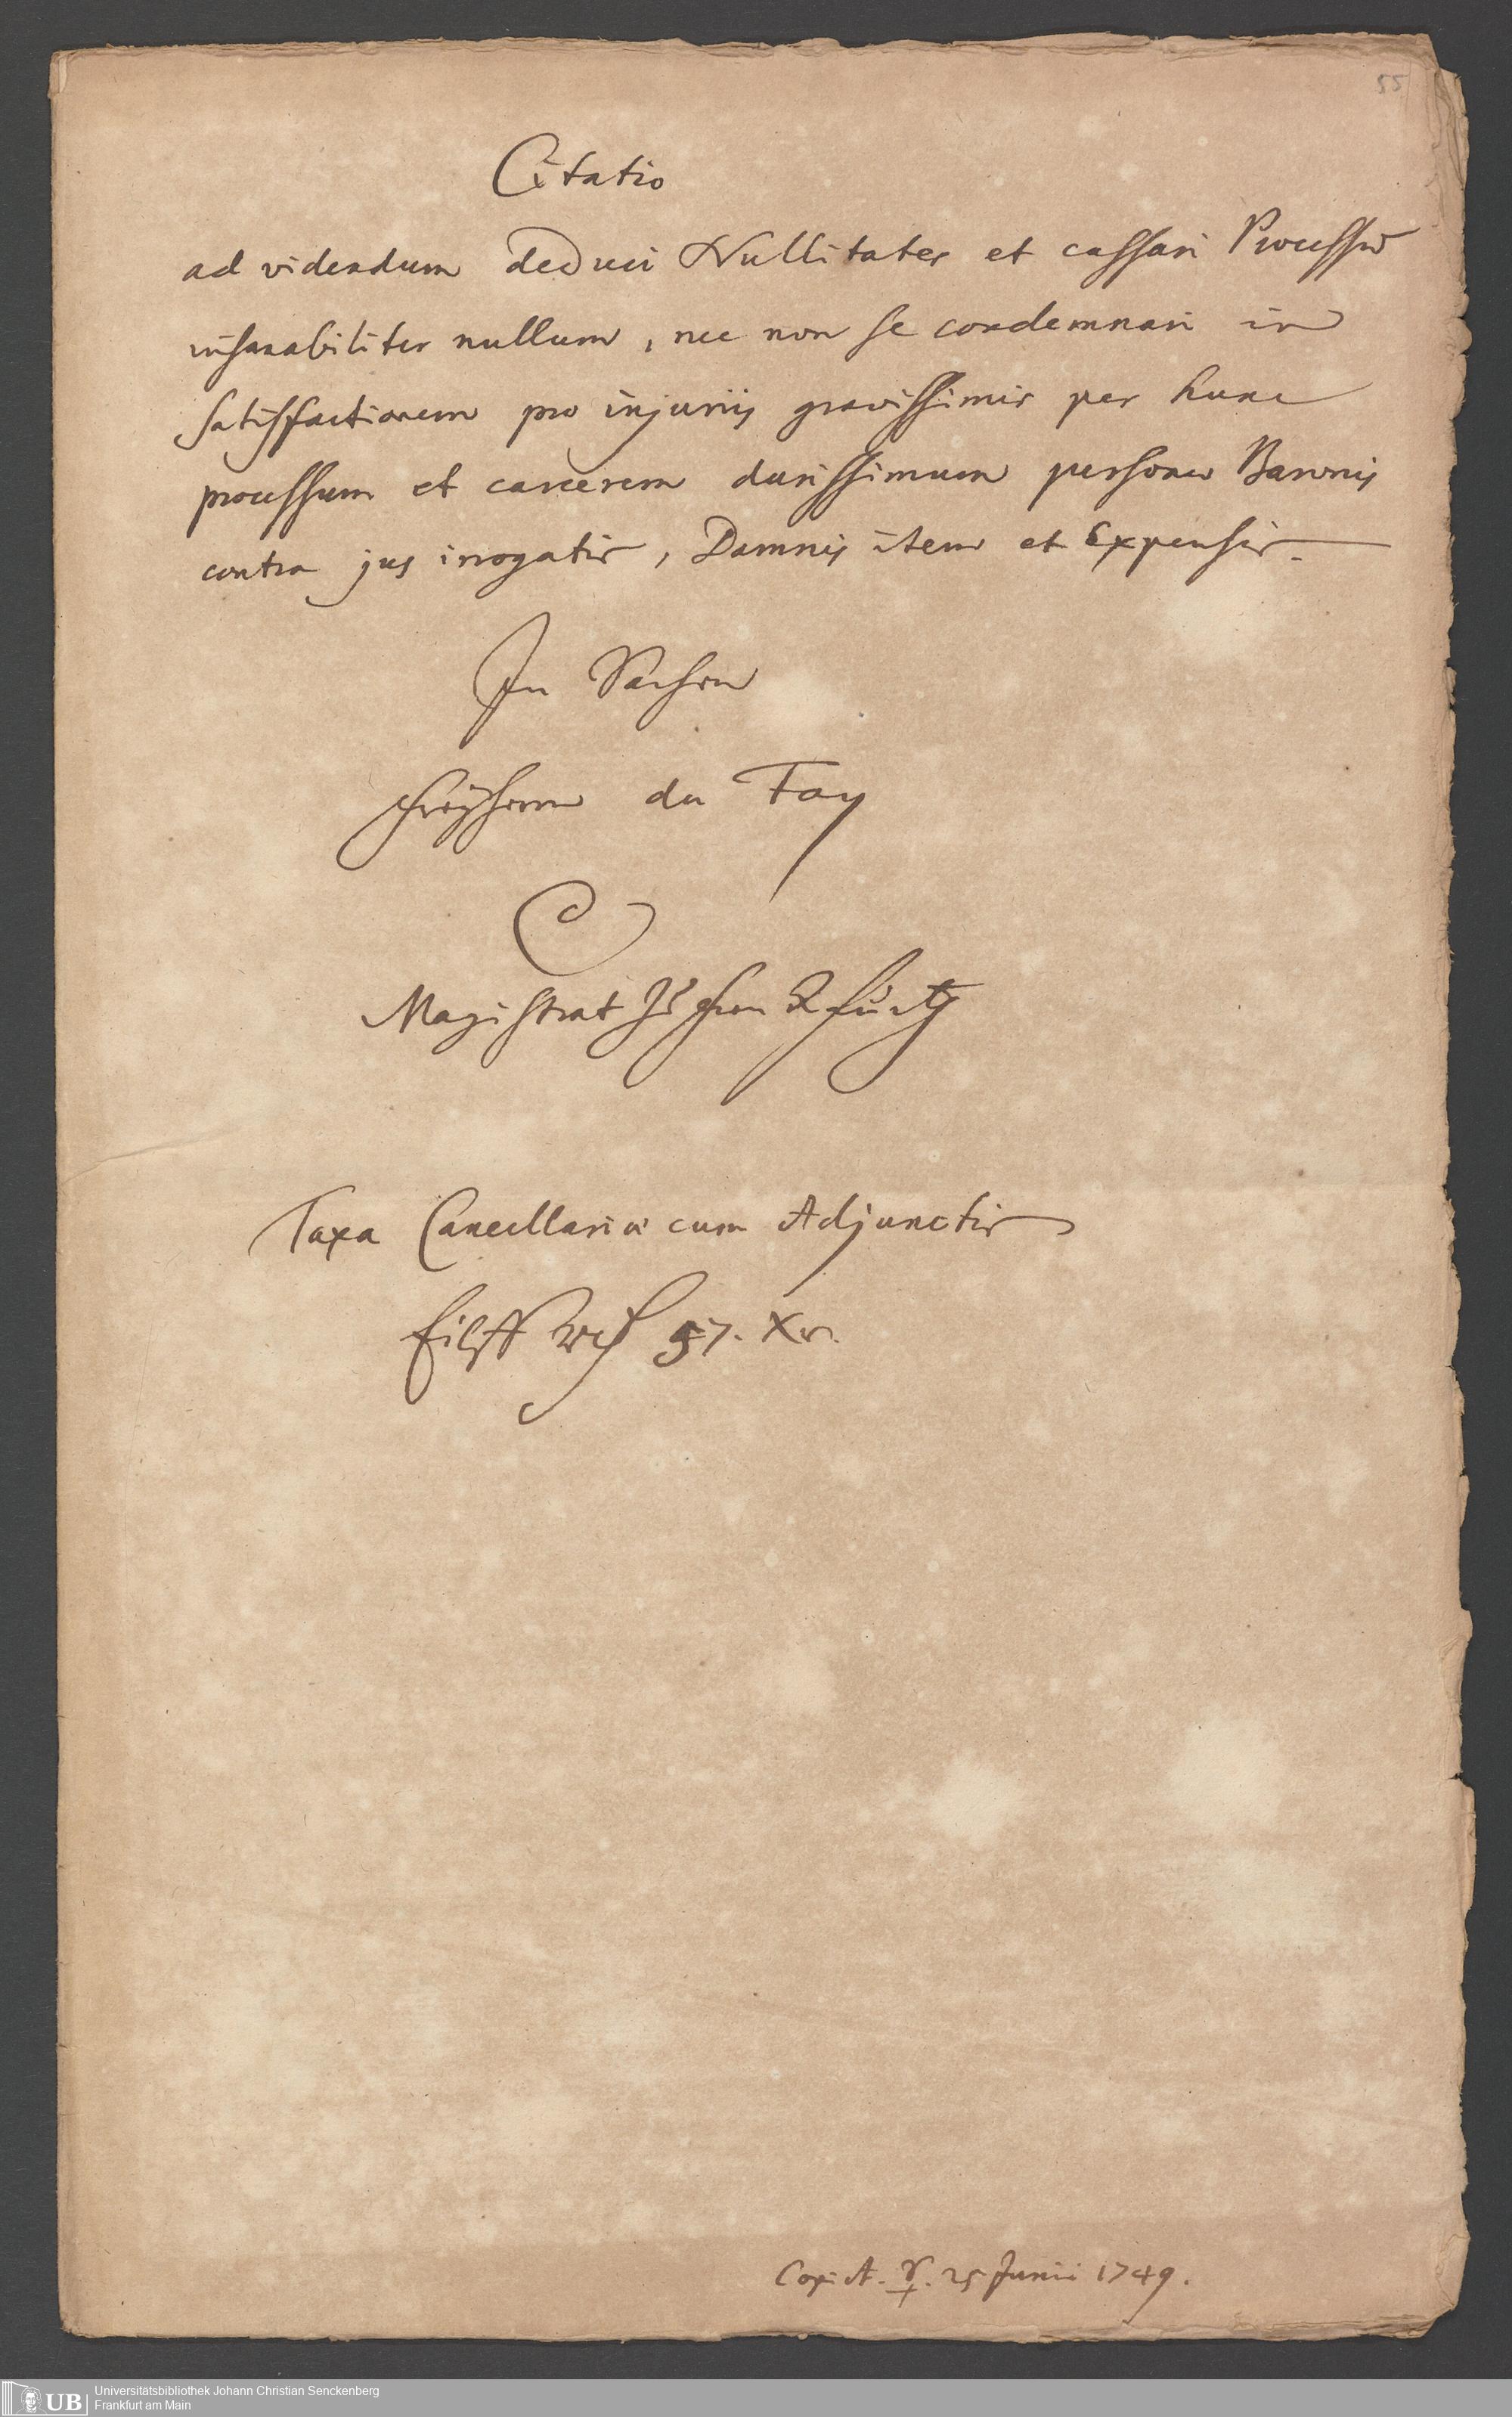 55
Citatio
ad videndum deduci Nullitates et cassari Processū
insanabiliter nullum, nec non se condemnari in
satisfactionem pro injuriis gravissimis per hunc
processum et carcerem durissimum personæ Baronis
contra jus irrogatis, Damnis item et Expensis.
In Sachen
Freyherrn du Fay
C
Magistrat zu Franckfurth
Taxa Cancellariæ cum Adjunctis
Eilff 57. Xr.
25 Junii 1749.
UB Universitätsbibliothek Johann Christian Senckenberg
Frankfurt am Main